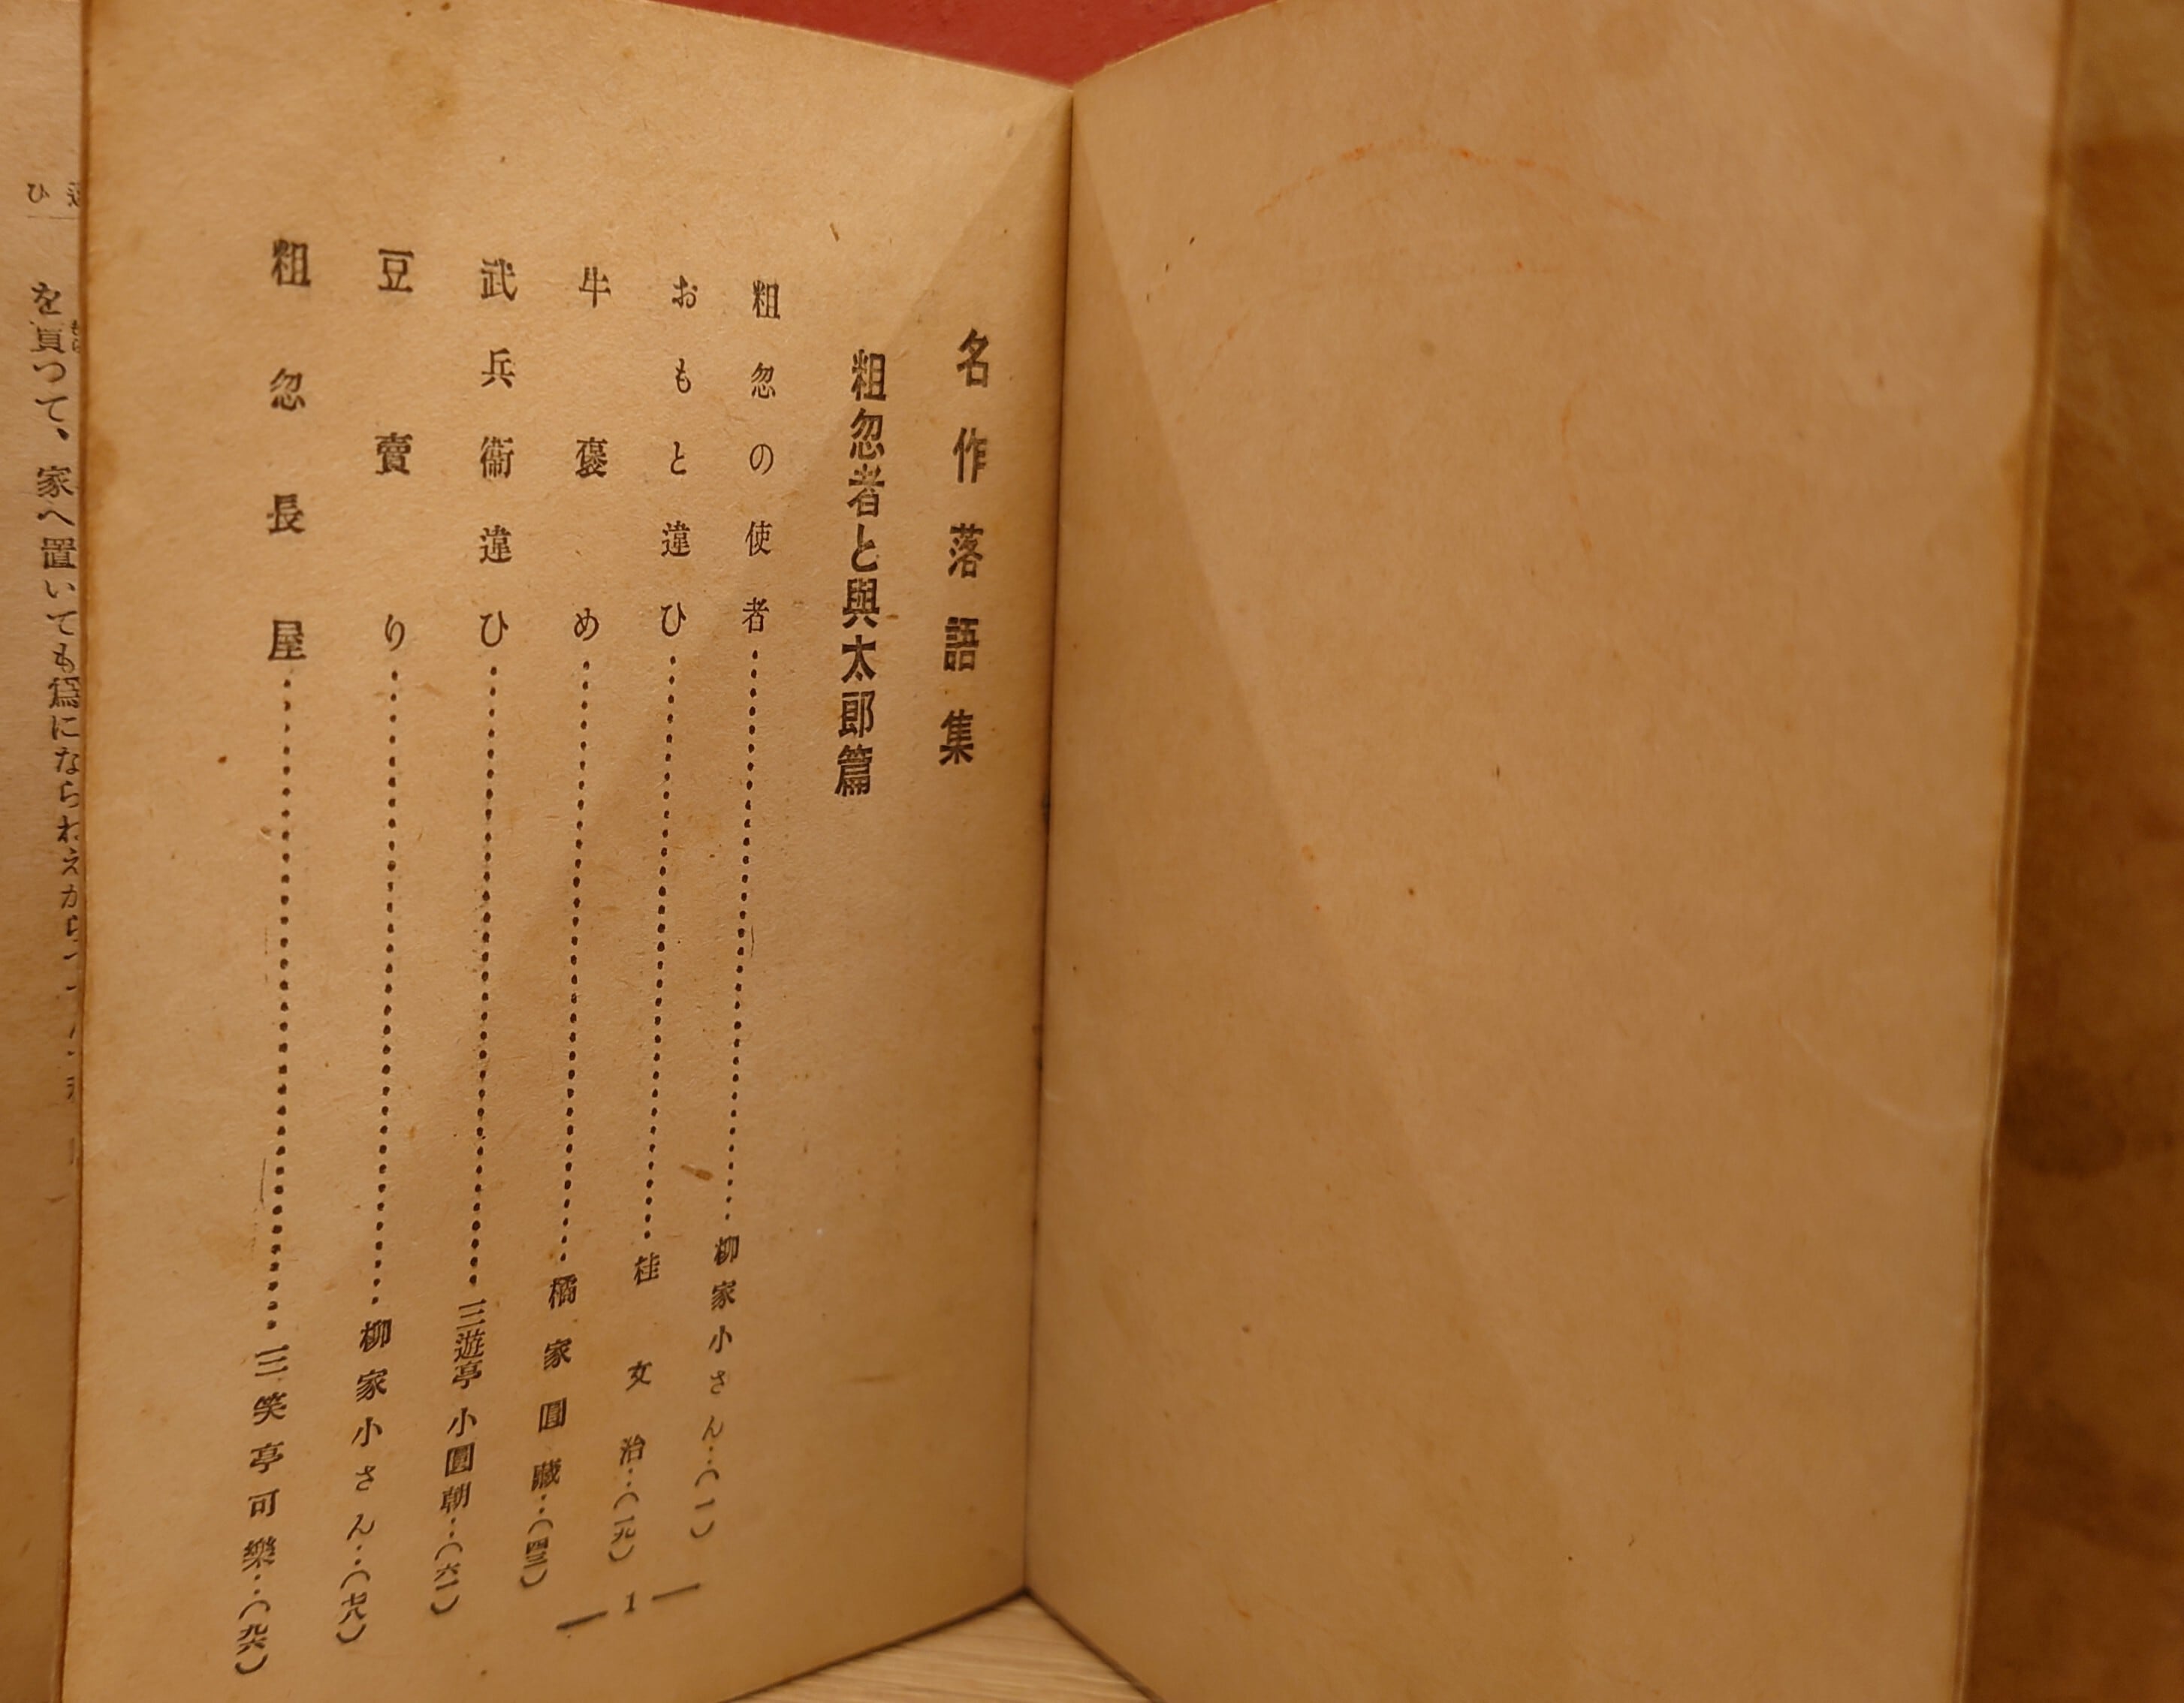 名作落語集
粗忽者と與太郎篇
粗忽の使者…柳家小さん…(一)
おもと違ひ…桂文治…(一九)
牛褒め…橘家圓藏…(四三)
武兵衞違ひ…三遊亭小圓朝…(六一)
豆賣り…柳家小さん…(七八)
粗忽長屋…三笑亭可樂…(九六)
— 1 —
ひ
を買つて、家へ置いても爲にならねえから